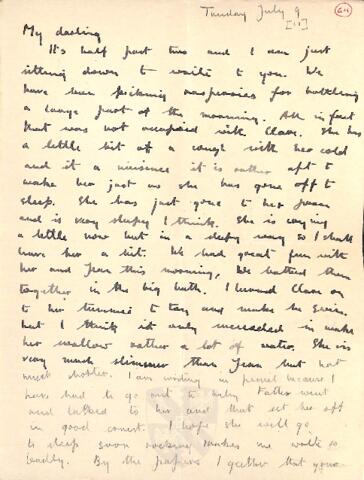 Tuesday July 9
[11]
My darling
It's half past two and I am just
sitting down to write to you. We
have been picking raspberries for bottling
a large part of the morning. All in fact
that was not occupied with Clare. She has
a little bit of a cough with her cold
and it a nuisance it is rather apt to
wake her just as she has gone off to
sleep. She has just gone to her pram
and is very sleepy I think. She is crying
a little now but in a sleepy way so I shall
leave her a bit. We had great fun with
her and Jean this morning. We bathed them
together in the big bath. I turned Clare on
to her tummy to try and make her swim
but I think it only succeeded in making
her swallow rather a lot of water. She is
very much slimmer than Jean but not
much shorter. I am writing in pencil because I
have had to go out to baby. Father went
and talked to her and that set her off
in good earnest. I hope she will go
to sleep soon rocking makes me write so
badly. By the papers I gather that your